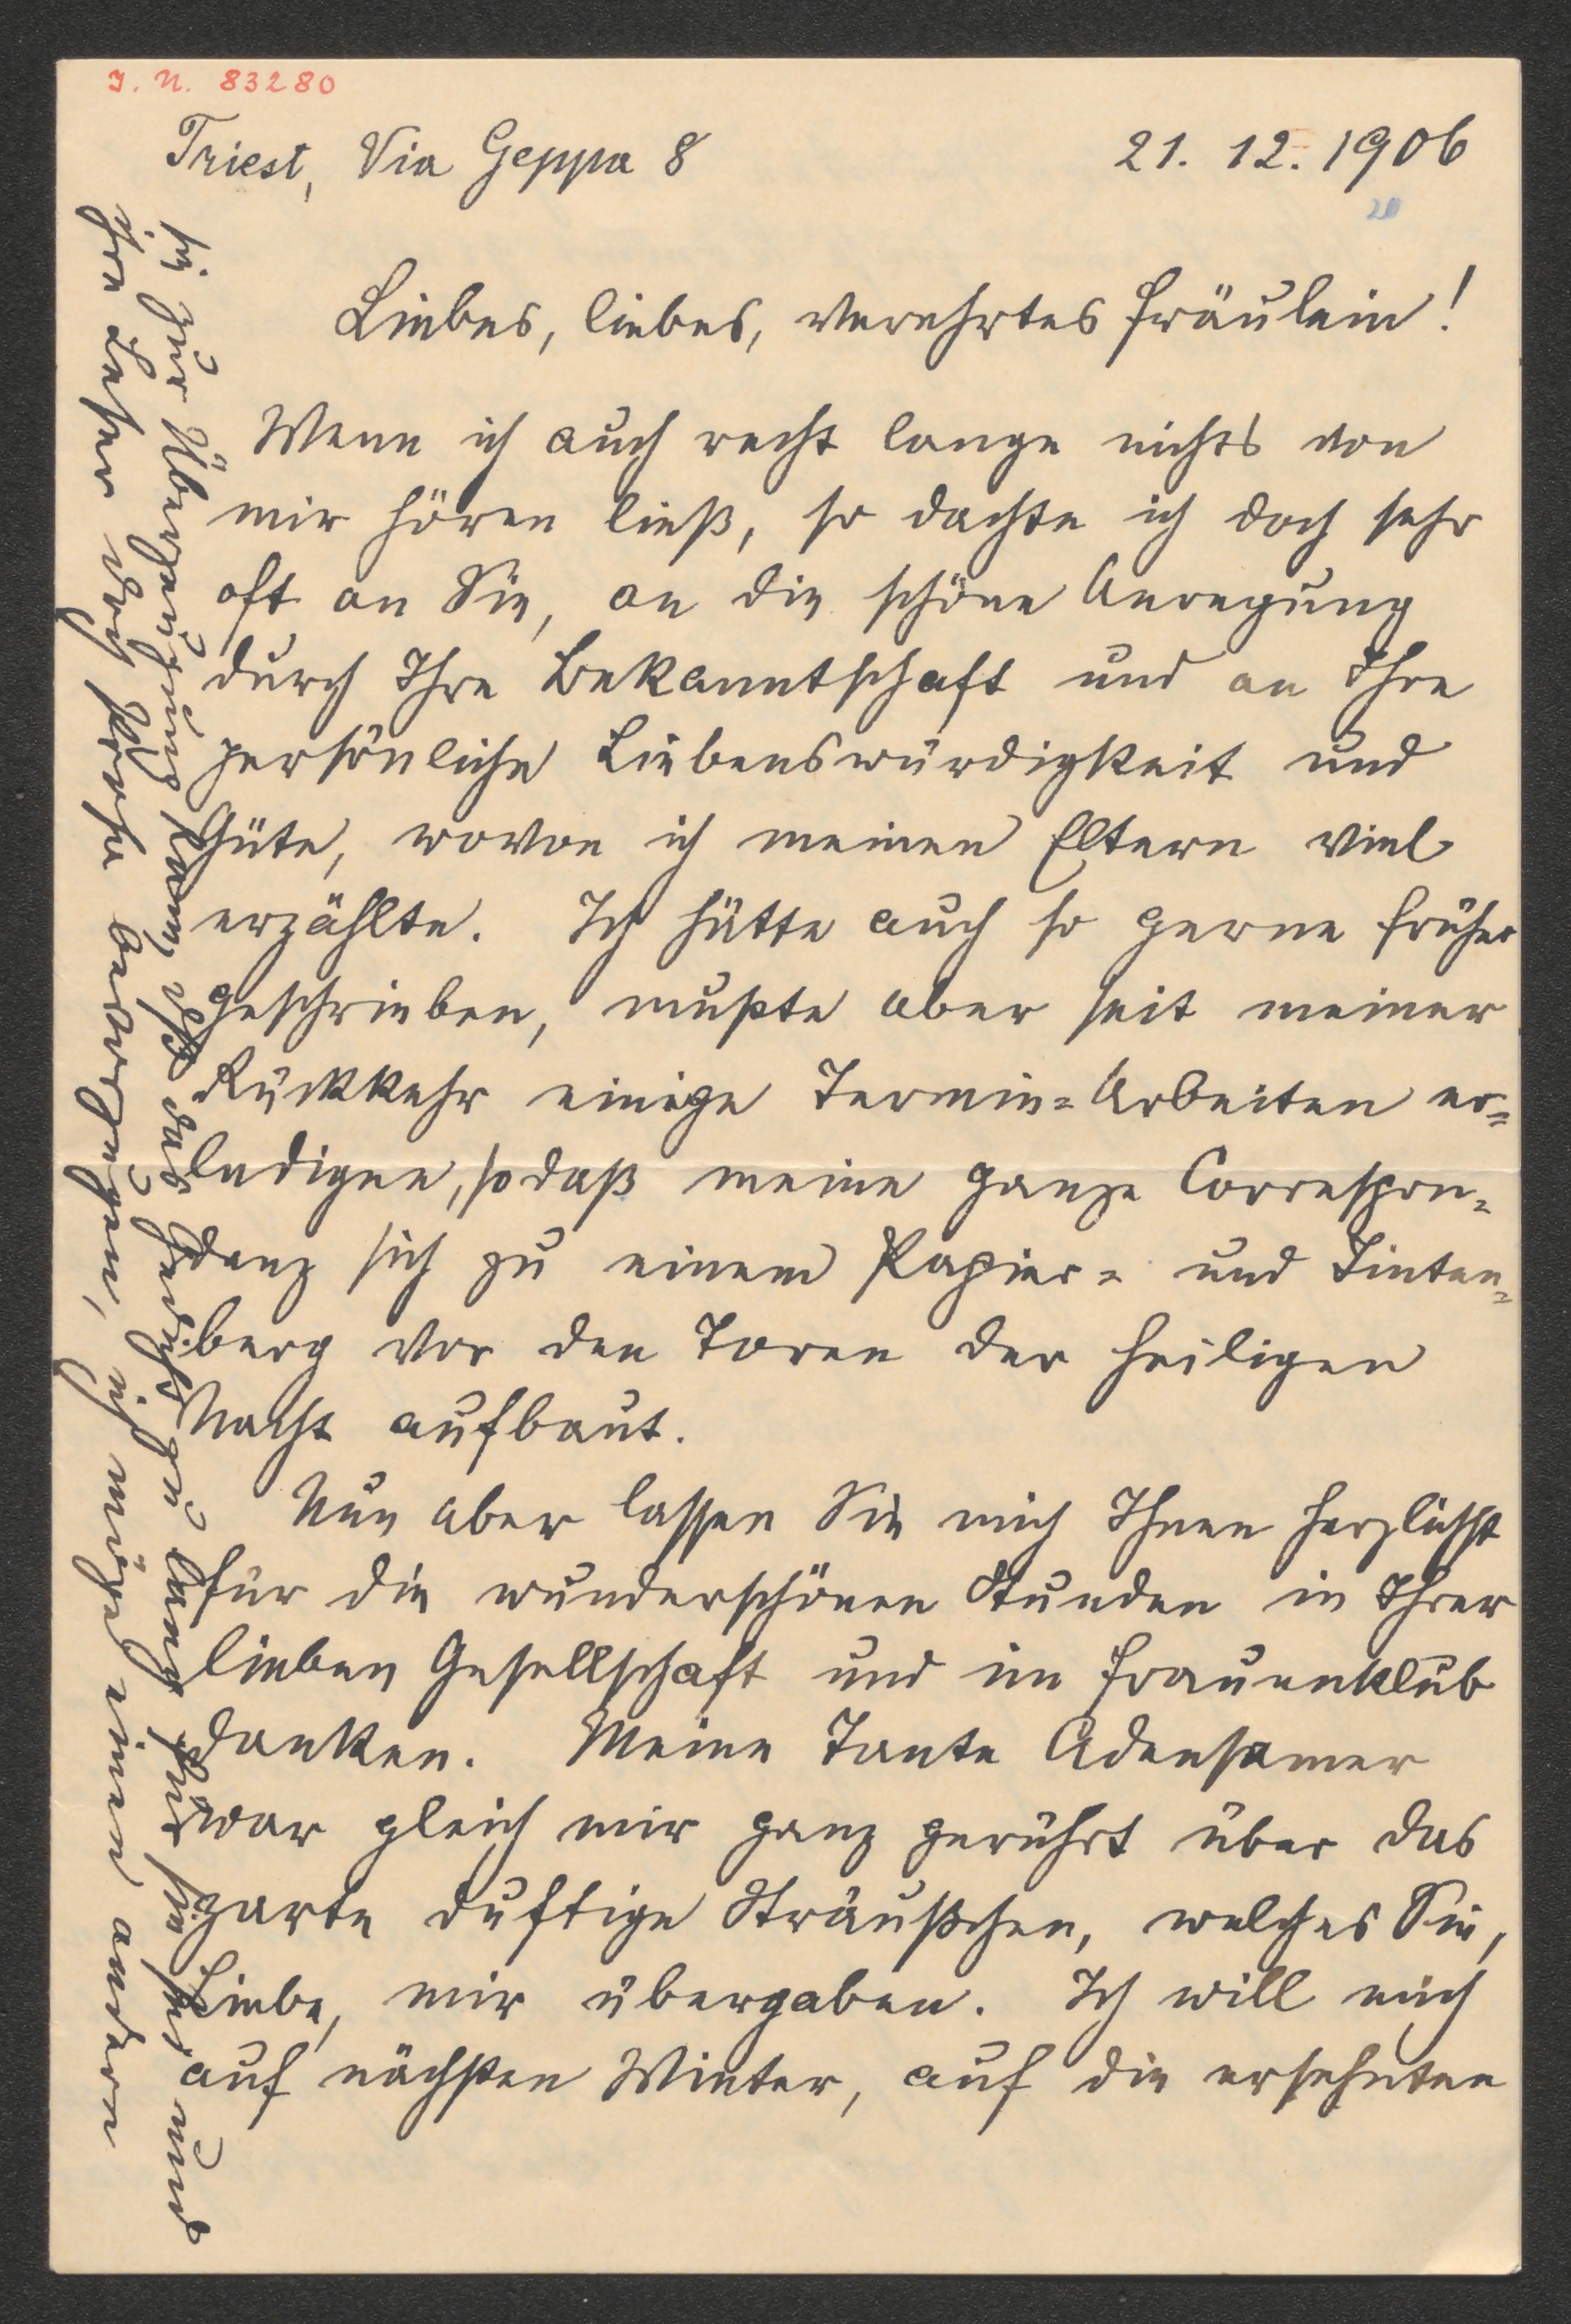 I. N. 83280
Triest, Via Geppa 8 21. 12. 1906
20
Liebes, liebes, verehrtes Fräulein!
Wenn ich auch recht lange nichts von
mir hören ließ, so dachte ich doch sehr
oft an Sie, an die schöne Anregung
durch Ihre Bekanntschaft und an Ihre
persönliche Liebenswürdigkeit und
Güte, wovon ich meinen Eltern viel
erzählte. Ich hätte auch so gerne früher
geschrieben, mußte aber seit meiner
Rückkehr einige Termin=Arbeiten er=
ledigen, sodaß meine ganze Correspon=
denz sich zu einem Papier= und Tinten=
berg vor den Toren der heiligen
Nacht aufbaut.
Nun aber lassen Sie mich Ihnen herzlichst
für die wunderschönen Stunden in Ihrer
lieben Gesellschaft und im Frauenklub
danken. Meine Tante Adensamer
war gleich mir ganz gerührt über das
zarte duftige Sträußchen, welches Sie,
Liebe, mir übergaben. Ich will mich
auf nächsten Winter, auf die ersehnten
sie zur Überzeugung kam, daß das Gedicht zu lang für sie sei und
ihre Leser doch Prosa bevorzugen, ich möge einen andern